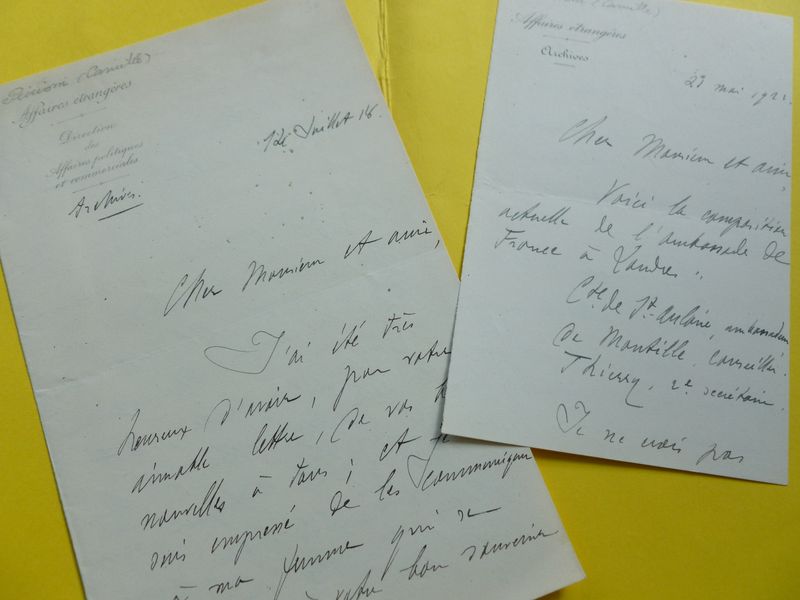 Affaires étrangères
Direction
des
Affaires politiques
et commerciales
Archives.
12 Juillet 16
Cher Monsieur et ami,
J'ai été très
heureux d'avoir, par votre
aimable lettre, de vos
nouvelles à tous ; et je
suis empressé de les communiquer
à ma femme qui se
votre bon souvenir
Affaires étrangères
Archives
23 mai 192
Cher Monsieur et ami,
Voici la composition
actuelle de l'ambassade de
France à Londres.
Cte de St Aulaire, ambassadeur
de Montille, conseiller.
Thierry, 2e secrétaire.
Je ne vois pas